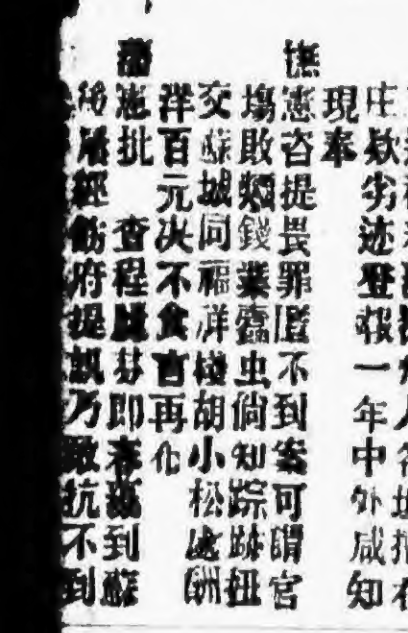 庄欵劣迹登報一年中外咸知
現奉
撫憲咨提畏罪匿不到案可謂官
塲敗類錢業蠹虫倘知踪跡扭
交蘇城同福祥棧胡小松處酬
洋百元决不食言再化
藩憲批 查程芬即春到蘇
屬經飭府提訊乃敢抗不到